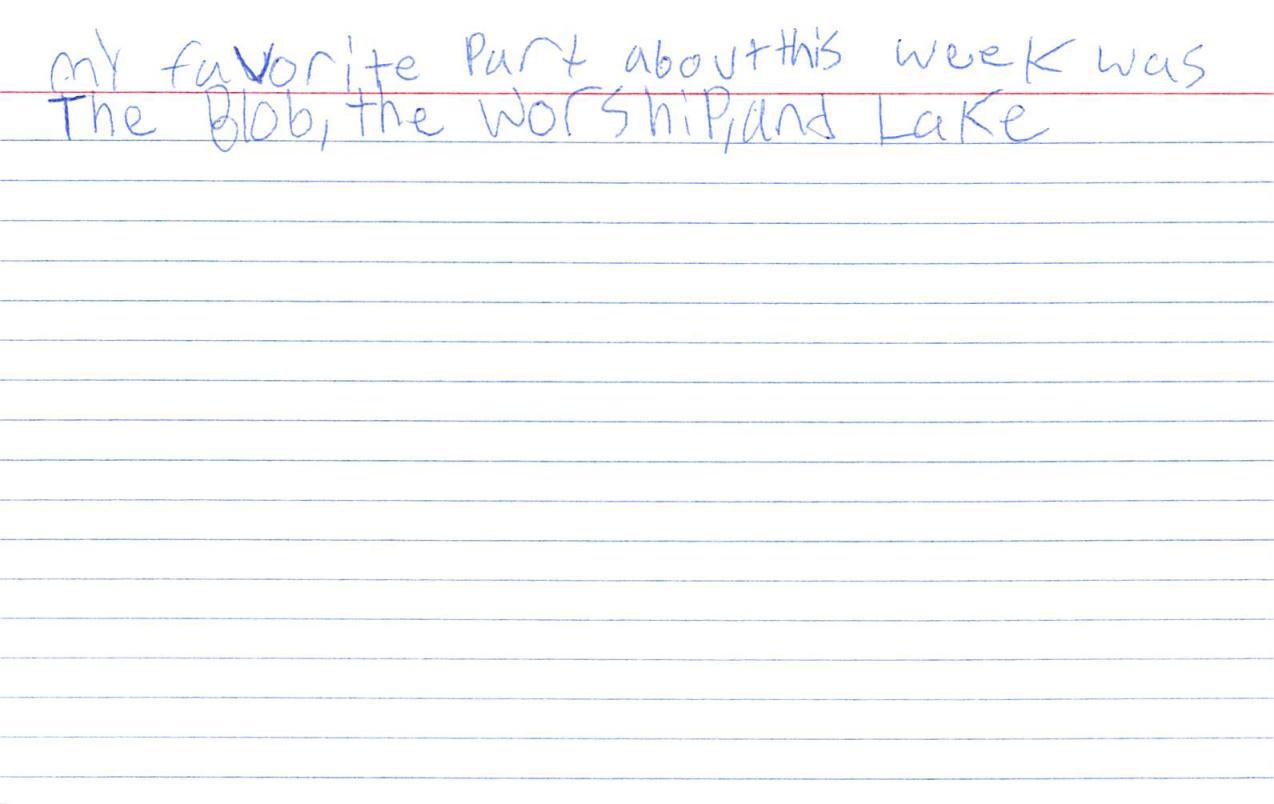 my favorite Part about this week was
The Blob, the worship, and Lake